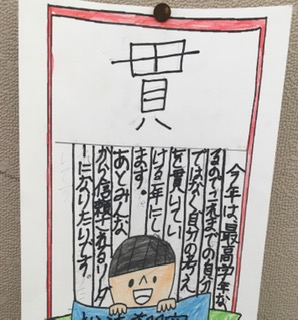 貫
今年は、最高学年な
るので、これまでの自分
ではなく自分の考え
を貫いてい
ける年にし
ます。
あとみんな
から信頼されるリーダ
ーになりたいです。